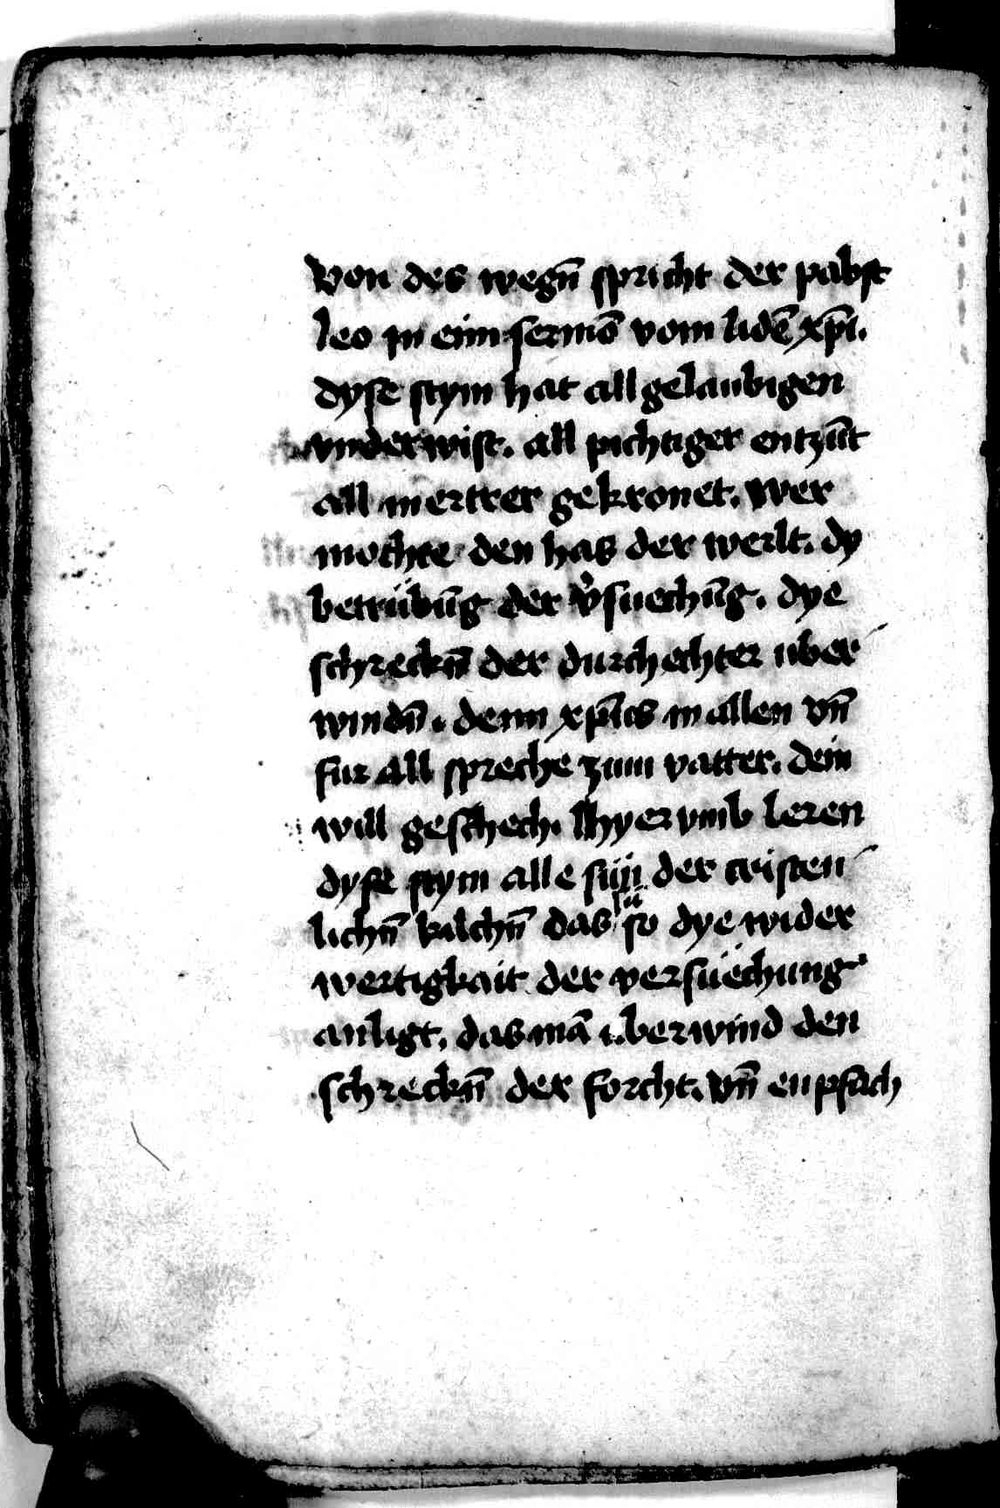 Von des wegn̄ spricht der pabst
leo in eim sermō vom lidē xp̄i.
dyse stym hat all gelaubigen
vnderwist. all pichtiger entzūt
all mertrer gekronet. wer
mochte den has der werlt. dy
betrübūg der v̉suechūg. dye
schreckn̄ der durchechter uber
windn̄. denn xp̄ics in allen vn̄
fur all spreche zum vatter. dein
will geschech. Hyer vmb leren
dyse stym alle sün der cristen
lichn̄ kilchn̄ das so dye wider
wertigkait der versuechung
anligt. das mā uberwind den
schreckn̄ der forcht. vn̄ enpfach